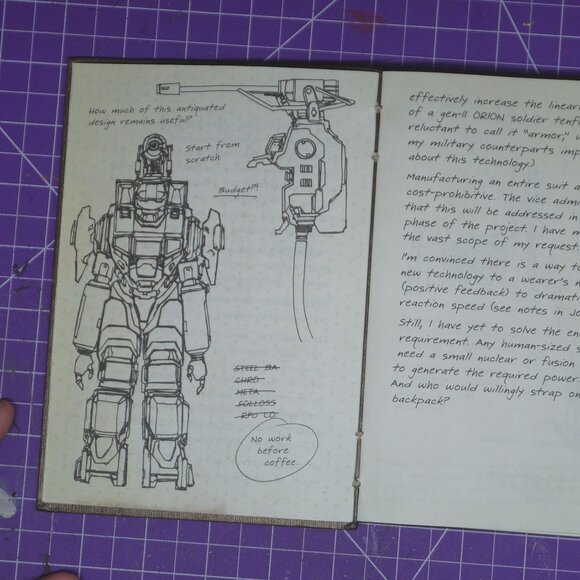 How much of this antiquated
design remains useful?
Start from
scratch.
Budget?!
STEEL BA
CHRO
META
COLLOSS
RPO CO.
No work
before
coffee.
effectively increase the linear
of a gen-II ORION soldier tenfo
reluctant to call it "armor,"
my military counterparts imp
about this technology.)
Manufacturing an entire suit a
cost-prohibitive. The vice admi
that this will be addressed in
phase of the project. I have m
the vast scope of my request.
I'm convinced there is a way to
new technology to a wearer's n
(positive feedback) to dramati
reaction speed (see notes in Jo
Still, I have yet to solve the en
requirement. Any human-sized s
need a small nuclear or fusion
to generate the required power
And who would willingly strap on
backpack?